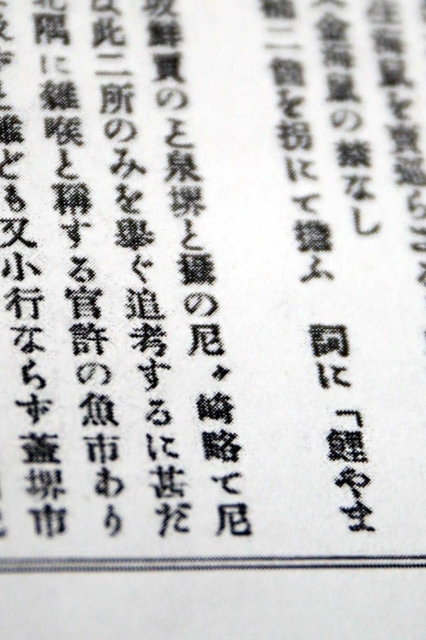 海鼠を賣巡ら
金海鼠の類なし
二箇を拐にて擔ふ　詞に「鯉やま
鮮買のと泉堺と攝の尼ヶ崎略て尼
は此二所のみを擧ぐ追考するに甚だ
北隅に雜喉と稱する官許の魚市あり
雖ども又小行ならず蓋堺市